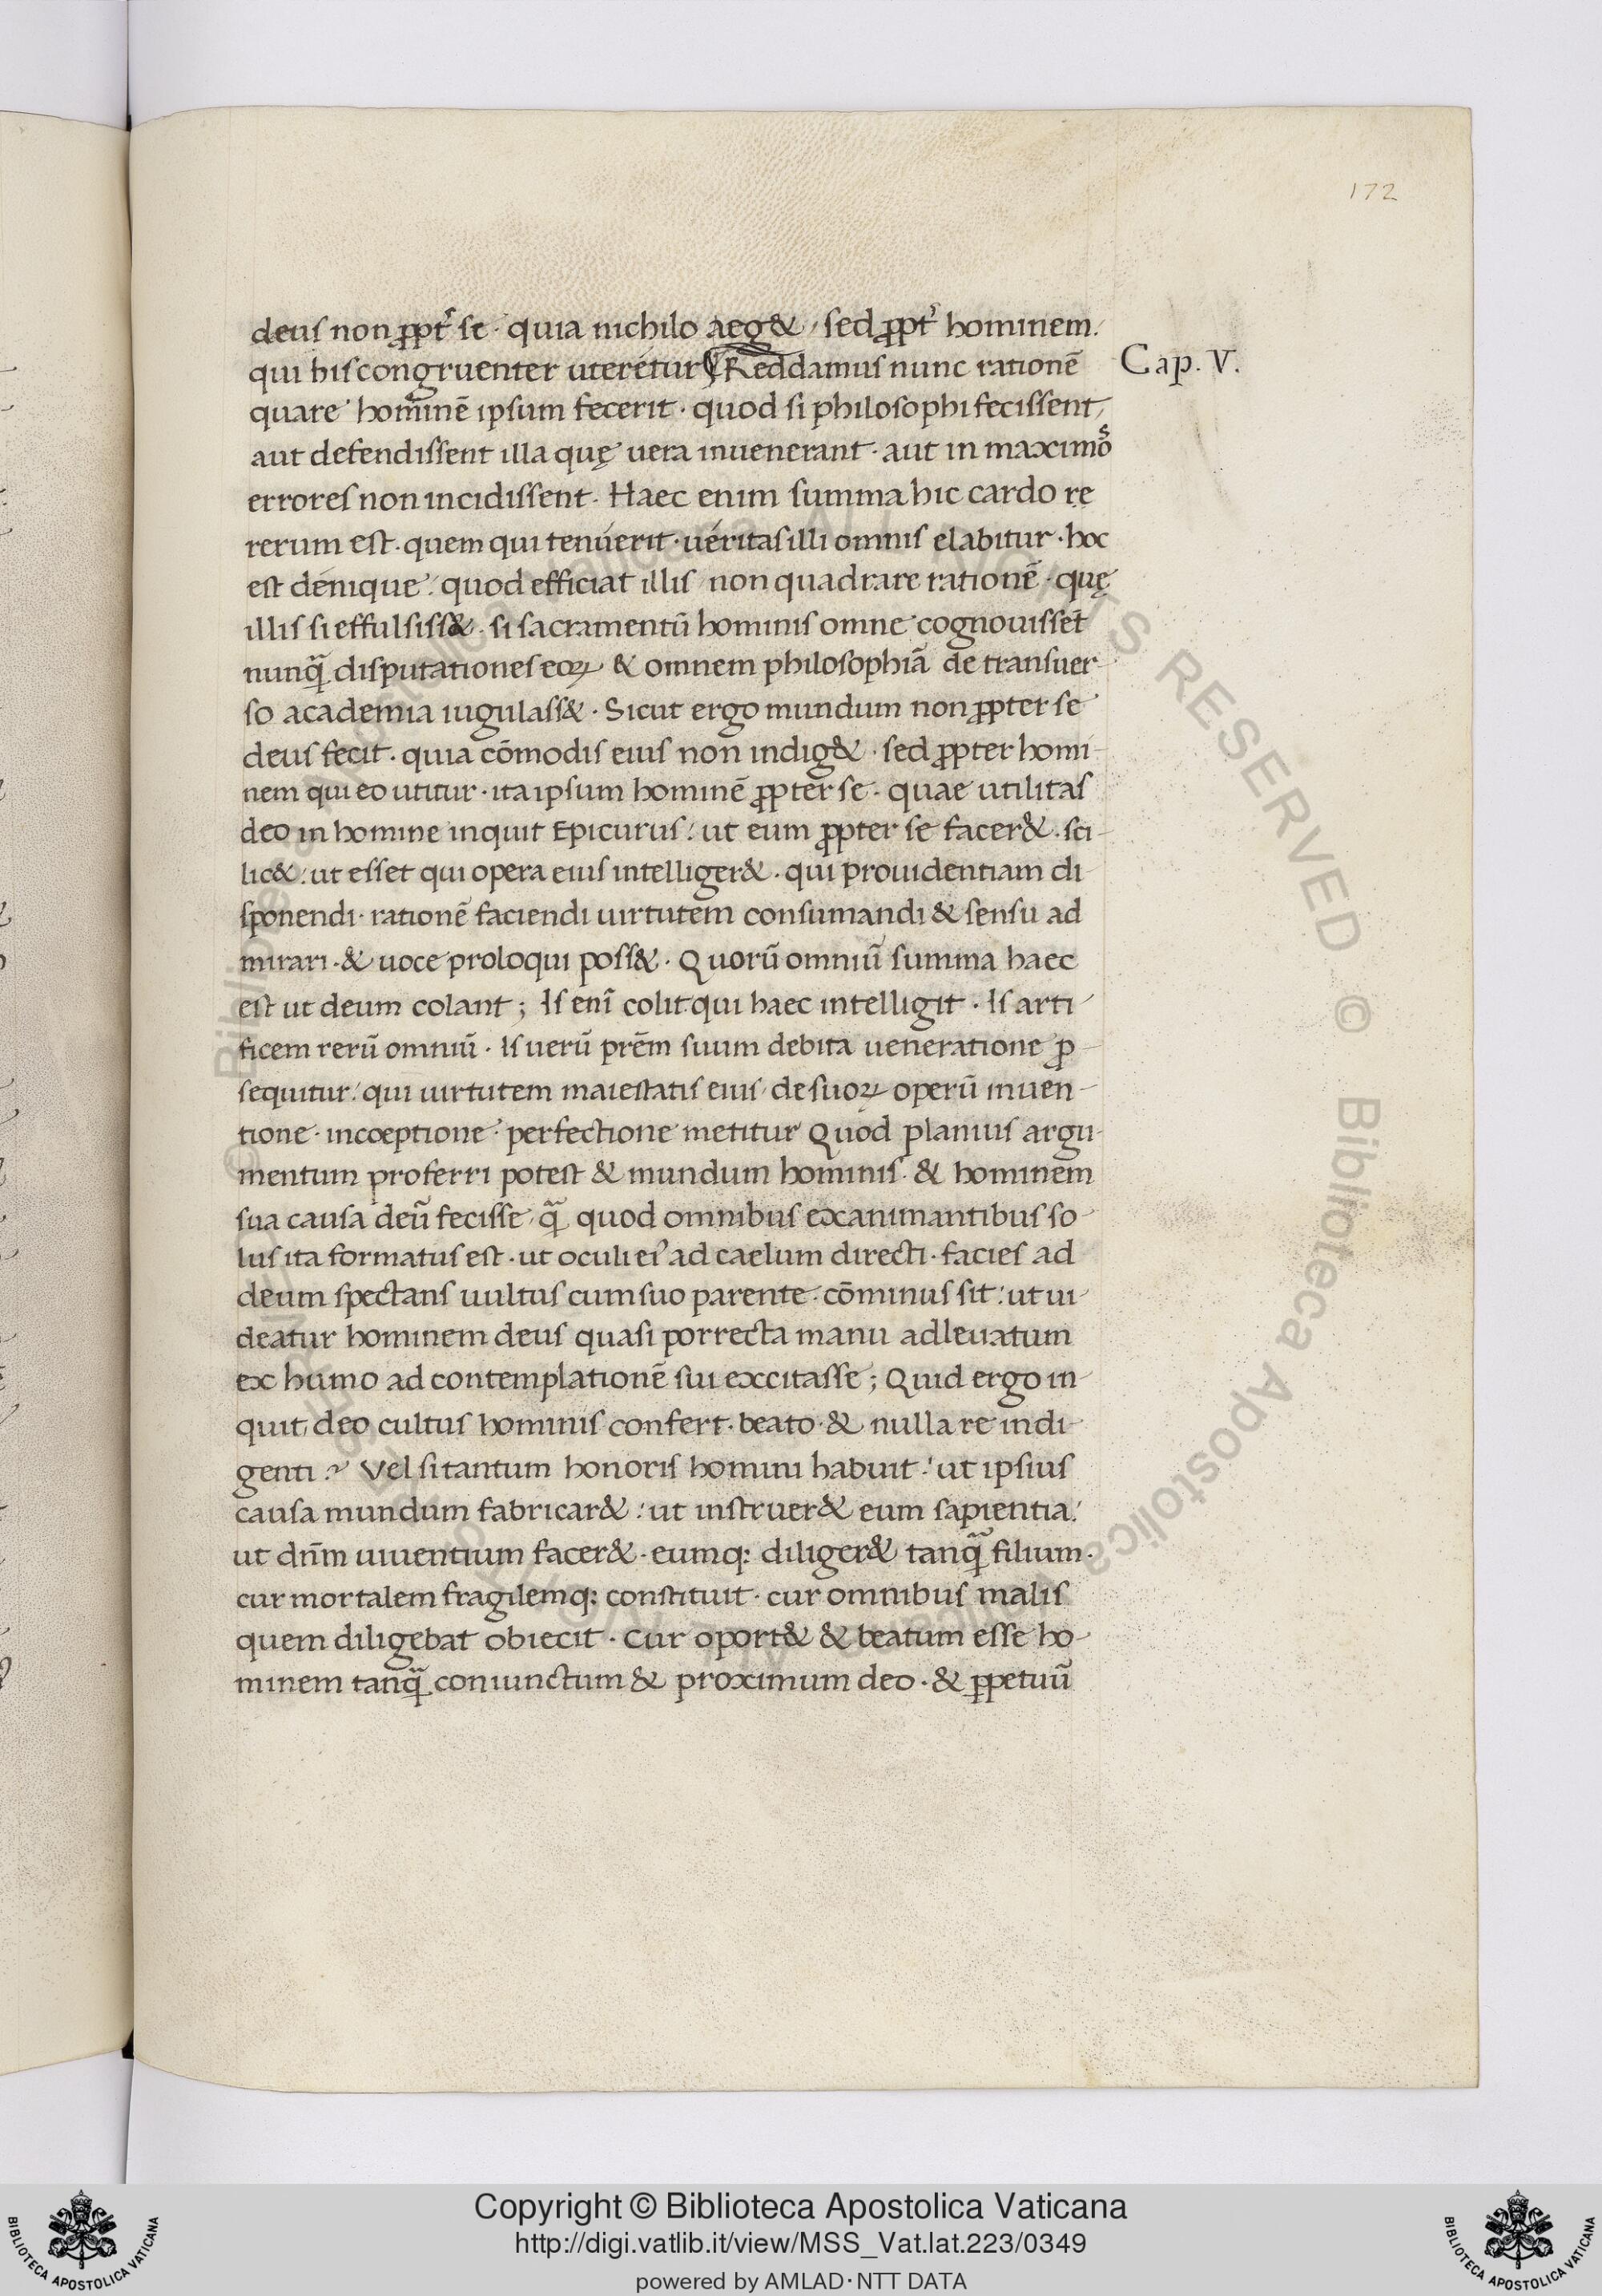 172
deus non ꝓpt᷑ se · quia nichilo aeg& / sed ꝓpt᷑ hominem.
qui his congruenter uteretur Reddamus nunc rationē
Cap. V.
quare hominē ipsum fecerit · quod si philosophi fecissent,
aut defendissent illa quę uera inuenerant · aut in maximoˢ
errores non incidissent · Haec enim summa hic cardo re
rerum est · quem qui tenuerit · ueritas illi omnis elabitur · hoc
est denique : quod efficiat illis / non quadrare rationē · quę
illis si effulsiss& · si sacramentū hominis omne cognouissēt
nunq̃ disputationes eoꝝ & omnem philosophiā de transuer-
so academia iugulass& · Sicut ergo mundum non ꝓpter se
deus fecit · quia cōmodis eius non indig& · sed ꝓpter homi-
nem qui eo utitur · ita ipsum hominē ꝓpter se · quae utilitas
deo in homine inquit Epicurus : ut eum ꝓpter se facer& · sci-
lic& : ut esset qui opera eius intelliger& · qui prouidentiam di-
sponendi · rationē faciendi uirtutem consumandi & sensu ad
mirari · & uoce proloqui poss& · Quorū omniū summa haec
est ut deum colant ; Is enī colit qui haec intelligit · Is arti-
ficem rerū omniū · Is uerū prēm suum debita ueneratione ꝓ-
sequitur : qui uirtutem maiestatis eius / de suoꝝ operū inuen-
tione · incoeptione · perfectione metitur Quod planius argu-
mentum proferri potest & mundum hominis · & hominem
sua causa deū fecisse / q̃ quod omnibus ex animantibus so-
lus ita formatus est · ut oculi eiꝰ ad caelum directi · facies ad
deum spectans uultus cum suo parente · cōminus sit : ut ui-
deatur hominem deus quasi porrecta manu adleuatum
ex humo ad contemplationē sui excitasse ; Quid ergo in-
quit / deo cultus hominis confert · beato · & nulla re indi-
genti ? Vel si tantum honoris homini habuit : ut ipsius
causa mundum fabricar& : ut instruer& eum sapientia :
ut dn̄m uiuentium facer& · eumq: diliger& tanq̃ filium ·
cur mortalem fragilemq: constituit · cur omnibus malis
quem diligebat obiecit · Cur oport& & beatum esse ho-
minem tanq̃ coniunctum & proximum deo · & ꝑpetuū
© Biblioteca Apostolica Vaticana ALL RIGHTS RESERVED © Biblioteca Apostolica Vaticana
BIBLIOTECA APOSTOLICA VATICANA
Copyright © Biblioteca Apostolica Vaticana
http://digi.vatlib.it/view/MSS_Vat.lat.223/0349
powered by AMLAD·NTT DATA
BIBLIOTECA APOSTOLICA VATICANA